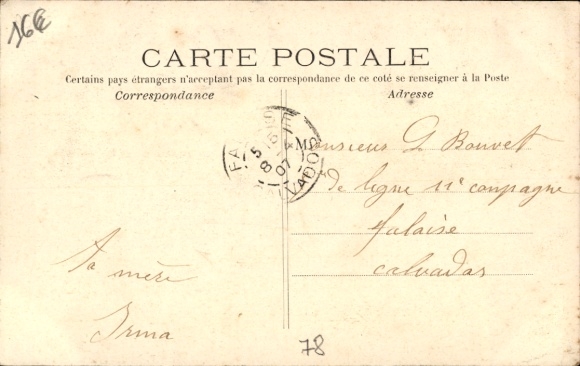 16€
CARTE POSTALE
Certains pays étrangers n'acceptent pas la correspondance de ce coté se renseigner à la Poste
Correspondance
Adresse
Monsieur G Bouvet
de ligne 11e compagne
falaise
calvados
Ta mère
Irma
78